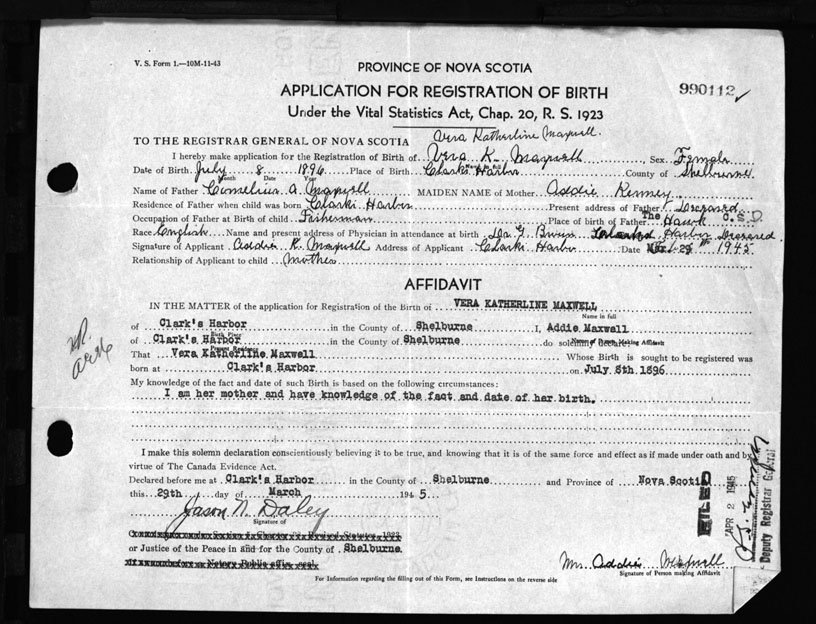 V. S. Form 1.—10M-11-43
PROVINCE OF NOVA SCOTIA
APPLICATION FOR REGISTRATION OF BIRTH
990112
Under the Vital Statistics Act, Chap. 20, R. S. 1923
Vera Katherline Maxwell.
TO THE REGISTRAR GENERAL OF NOVA SCOTIA
I hereby make application for the Registration of Birth of Vera K. Maxwell Sex Female
Name in full
Date of Birth July 8 1896 Place of Birth Clarks Harbor County of Shelburne
Month Date Year
Name of Father Cornelius A. Maxwell MAIDEN NAME of Mother Addie Kenney
Residence of Father when child was born Clarks Harbor Present address of Father Deceased
Occupation of Father at Birth of child Fisherman Place of birth of Father The Hawk C. S. D.
Race English Name and present address of Physician in attendance at birth Dr. Harbor Deceased
Signature of Applicant Addie K. Maxwell Address of Applicant Clarks Harbor Date 1945
Relationship of Applicant to child Mother
AFFIDAVIT
IN THE MATTER of the application for Registration of the Birth of VERA KATHERLINE MAXWELL
Name in full
of Clark's Harbor in the County of Shelburne I, Addie Maxwell
Birth Place Name of Person Making Affidavit
of Clark's Harbor in the County of Shelburne do solemnly declare
Present Residence
That Vera Katherline Maxwell Whose Birth is sought to be registered was
born at Clark's Harbor on July 8th 1896
My knowledge of the fact and date of such Birth is based on the following circumstances:
I am her mother and have knowledge of the fact and date of her birth.
I make this solemn declaration conscientiously believing it to be true, and knowing that it is of the same force and effect as if made under oath and by
virtue of The Canada Evidence Act.
Declared before me at Clark's Harbor in the County of Shelburne and Province of Nova Scotia
this 29th day of March 194 5
Jason N. Daley
Signature of
or Justice of the Peace in and for the County of Shelburne
Mrs Addie Maxwell
Signature of Person making Affidavit
For Information regarding the filling out of this Form, see Instructions on the reverse side
FILED
APR 2 1945
Deputy Registrar General